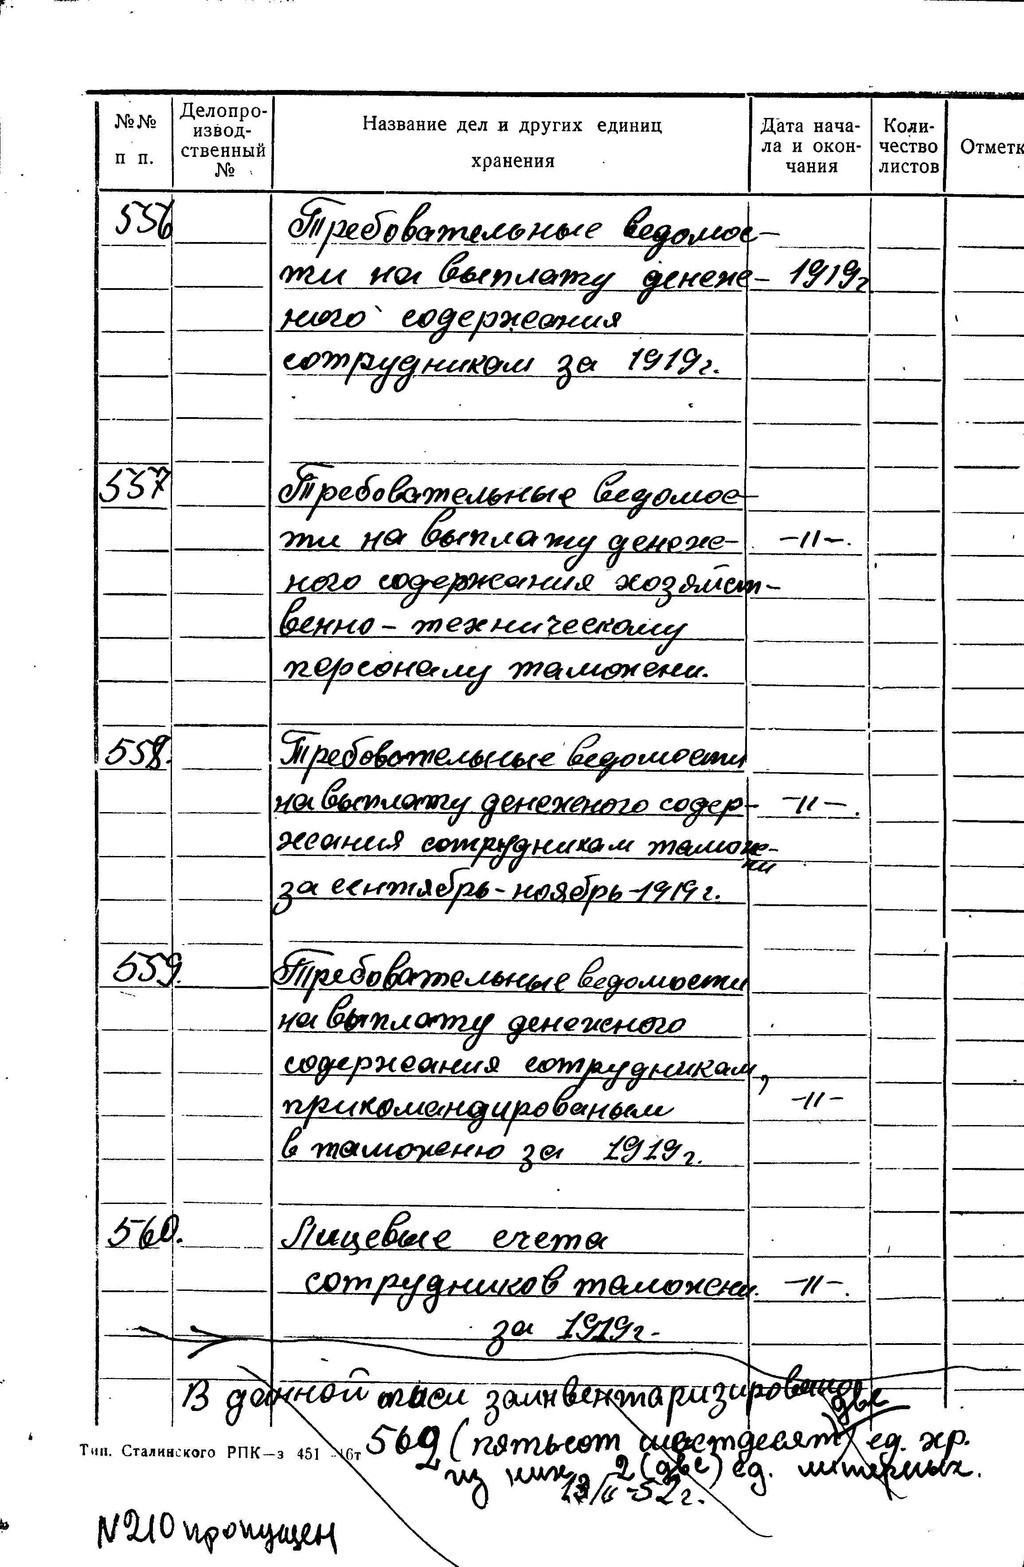 №№ п п.
Делопро-
извод-
ственный
№
Название дел и других единиц
хранения
Дата нача-
ла и окон-
чания
Коли-
чество
листов
Отметк
556 Требовательные ведомос-
ти на выплату денеж- 1919г
ного содержания
сотрудникам за 1919г.
557 Требовательные ведомос-
ти на выплату денеж- -11-.
ного содержания хозяйст-
венно-техническому
персоналу таможени.
558. Требовательные ведомости
на выплату денежного содер- -11-.
жания сотрудникам таможе-
ни
за сентябрь-ноябрь-1919г.
559. Требовательные ведомости
на выплату денежного
содержания сотрудникам,
прикомандированым -11-
в таможеню за 1919г.
560. Лицевые счета
сотрудников таможени. -11-.
за 1919г.
В данной описи заинвентаризировано
две
562 (пятьсот шестдесят) ед. хр.
из них 2 (две) ед. литерных.
13/II-52г.
Тип. Сталинского РПК—з 451
N210 пропущен